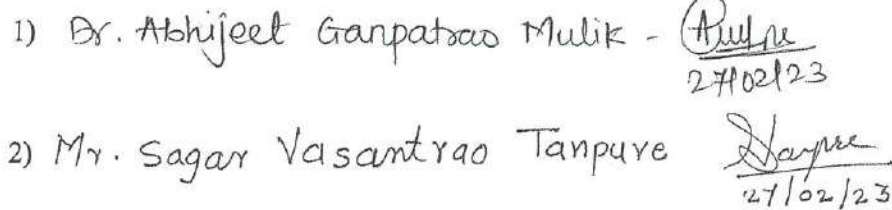 1) Dr. Abhijeet Ganpatrao Mulik -
27/02/23
2) Mr. Sagar Vasantrao Tanpure
27/02/23